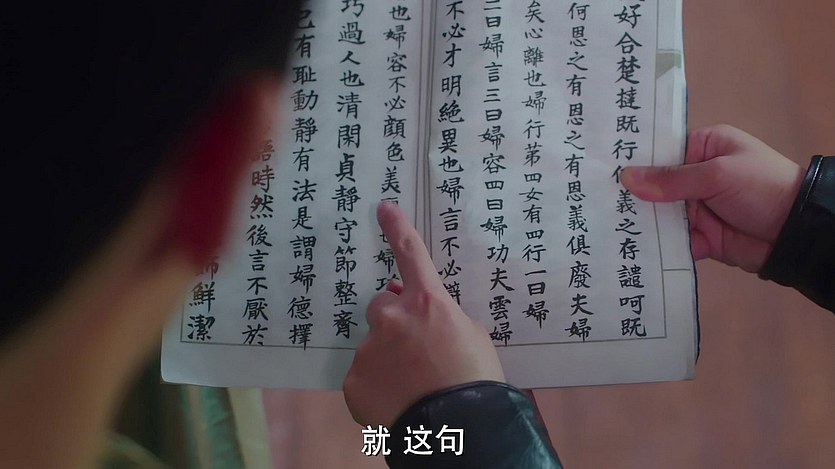 好合楚撻既行義之存譴呵既
何恩之有恩之有恩義俱廢夫婦
矣心離也婦行第四女有四行一曰婦
二曰婦言三曰婦容四曰婦功夫雲婦
不必才明絕異也婦言不必
也婦容不必顏色美也婦
巧過人也清閑貞靜守節整齊
己有恥動靜有法是謂婦德擇
語時然後言不厭於
鮮潔
就 这句